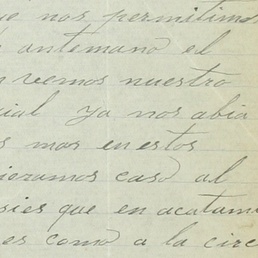 ue nos permitimo
antemano el
n vemos nuestro
cial ya nos abia
s mas en estos
ieramos caso al
sies que en acatam
es como a la circ